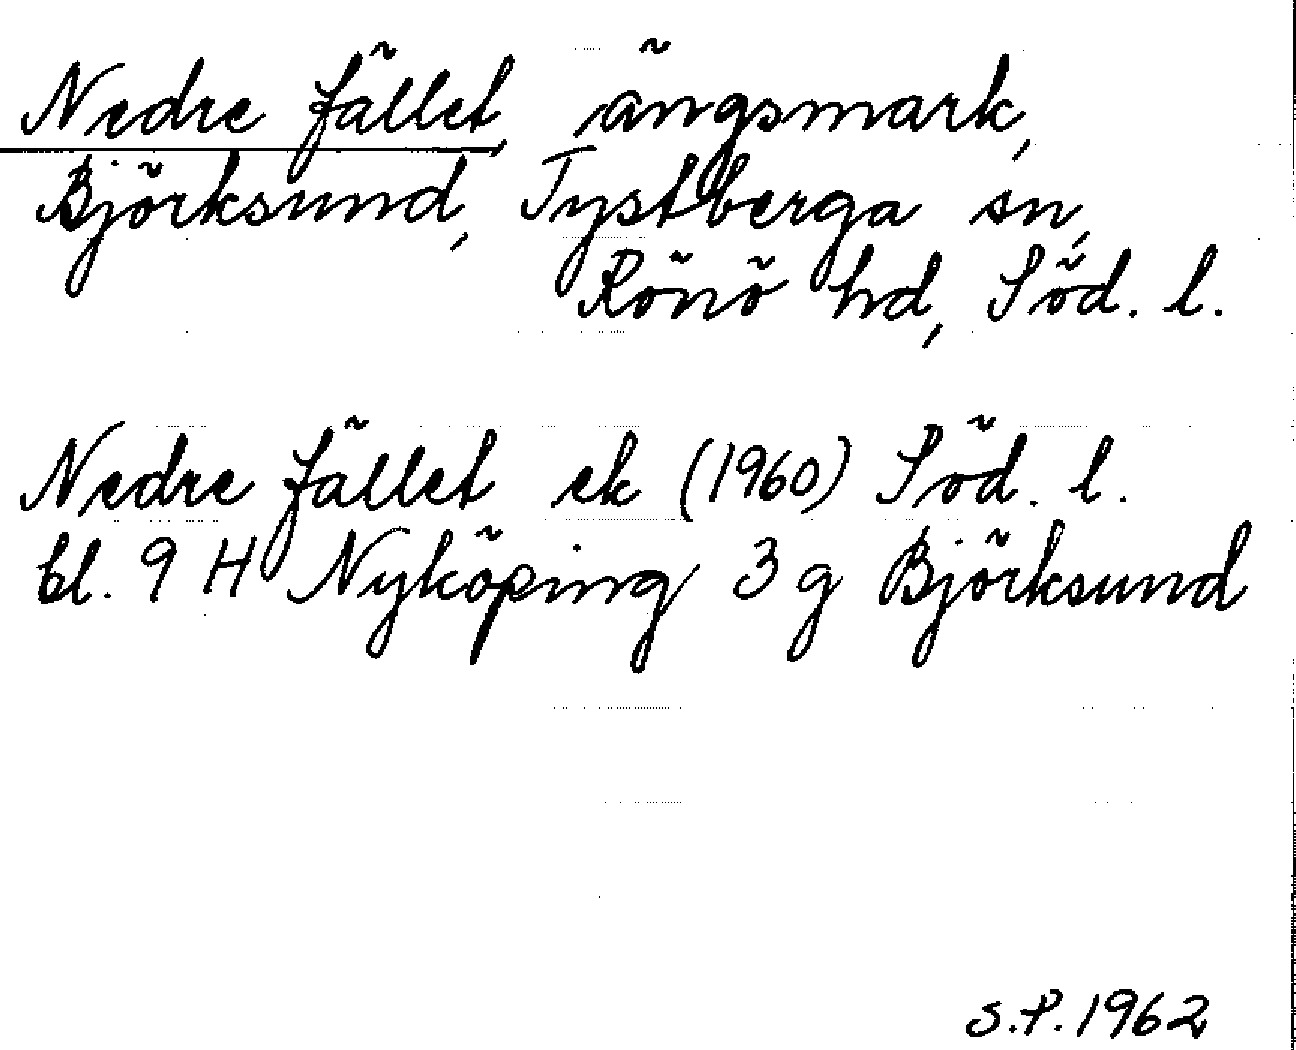 Nedre fället, ängsmark,
Björksund, Tystberga sn,
Rönö hd, Söd. l.
Nedre fället ek (1960) Söd. l.
bl. 9 H Nyköping 3 g Björksund
S.P. 1962